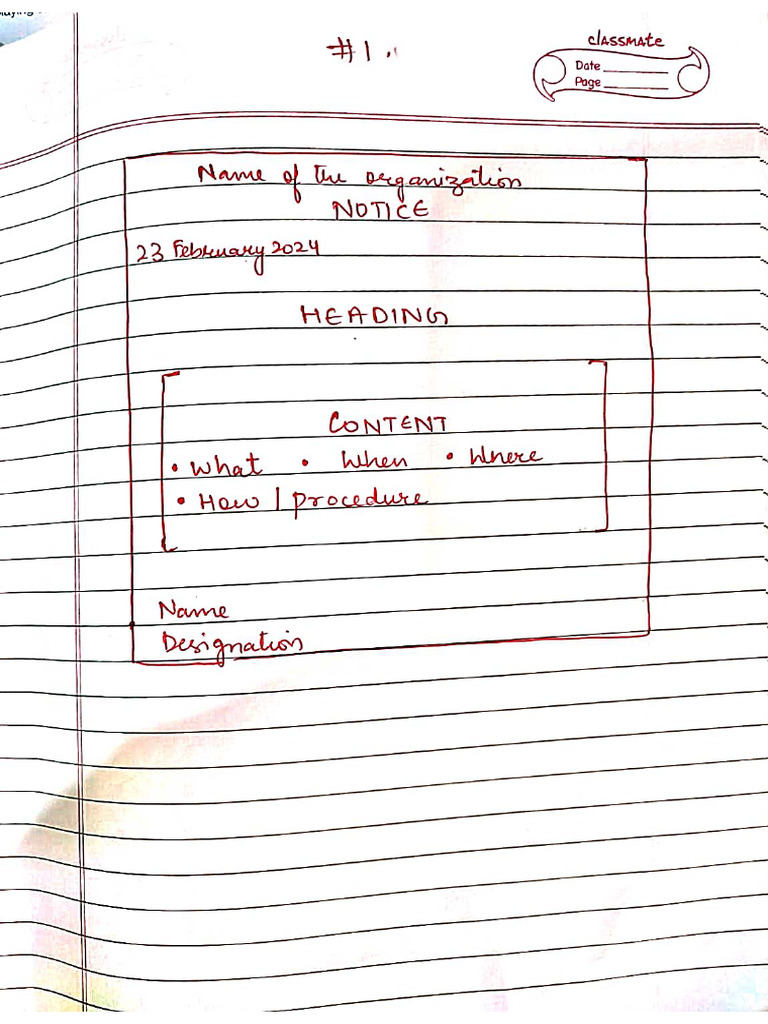 #1.
classmate
Date
Page
Name of the organization
NOTICE
23 February 2024
HEADING
CONTENT
• What • When • Where
• How / procedure
Name
Designation